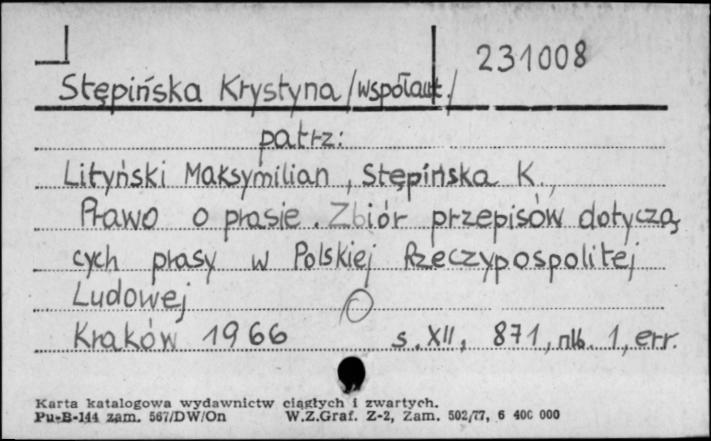 231008
Stępińska Krystyna /współaut./
patrz:
Lityński Maksymilian, Stępińska K.,
Prawo o prasie. Zbiór przepisów dotyczą
cych prasy w Polskiej Rzeczypospolitej
Ludowej
Kraków 1966 s. XII, 871, nlb. 1, err.
Karta katalogowa wydawnictw ciągłych i zwartych.
Pu-B-144 zam. 567/DW/On W.Z.Graf. Z-2, Zam. 502/77, 6 400 000